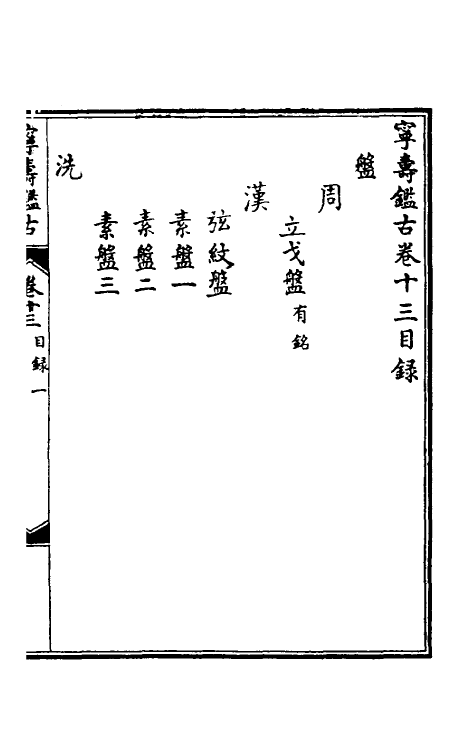 寧壽鑑古卷十三目録
盤
周
立戈盤有銘
漢
弦紋盤
素盤一
素盤二
素盤三
洗
寧壽鑑古
卷十三
目録
一